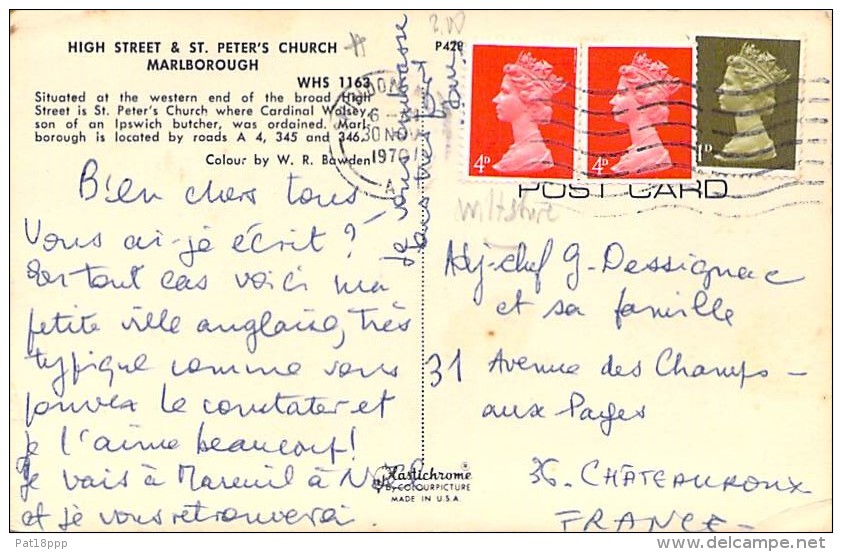 HIGH STREET & ST. PETER'S CHURCH
MARLBOROUGH
WHS 1163
Situated at the western end of the broad High
Street is St. Peter's Church where Cardinal Wolsey,
son of an Ipswich butcher, was ordained. Marl-
borough is located by roads A 4, 345 and 346.
Colour by W. R. Bawden
P428
30 NOV
1970
A
4D
4D
1D
POST CARD
Wiltshire
Bien chers tous
Vous ai-je écrit ?
En tout cas voici ma
petite ville anglaise, très
typique comme vous
pouvez le constater et
je l'aime beaucoup!
Je vais à Mareuil à Noël
et je vous retrouverai.
Je vous embrasse
tous très fort
Adj-chef G. Dessignac
et sa famille
31 Avenue des Champs-
aux Pages
36. CHÂTEAUROUX
FRANCE-
Plastichrome
By COLOURPICTURE
MADE IN U.S.A.
Pat18ppp
delcampe.net